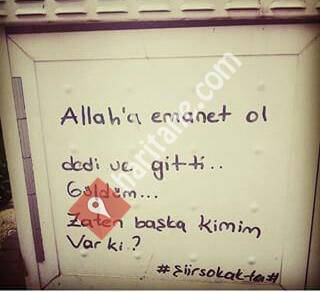 Allah'a emanet ol
dedi ve gitti..
Güldüm...
Zaten başka kimim
Var ki?
#şiirsokakta#
haritane.com